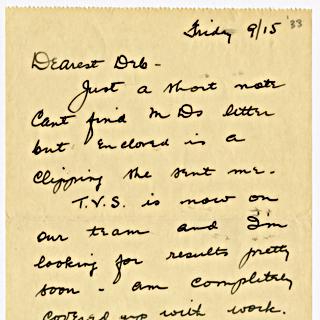 Friday 9/15 '33
Dearest Deb -
Just a short note
Cant find M Ds letter
but Enclosed is a
Clipping she sent me.
T.V.S. is now on
our team and I'm
looking for results pretty
soon - am completely
covered up with work.